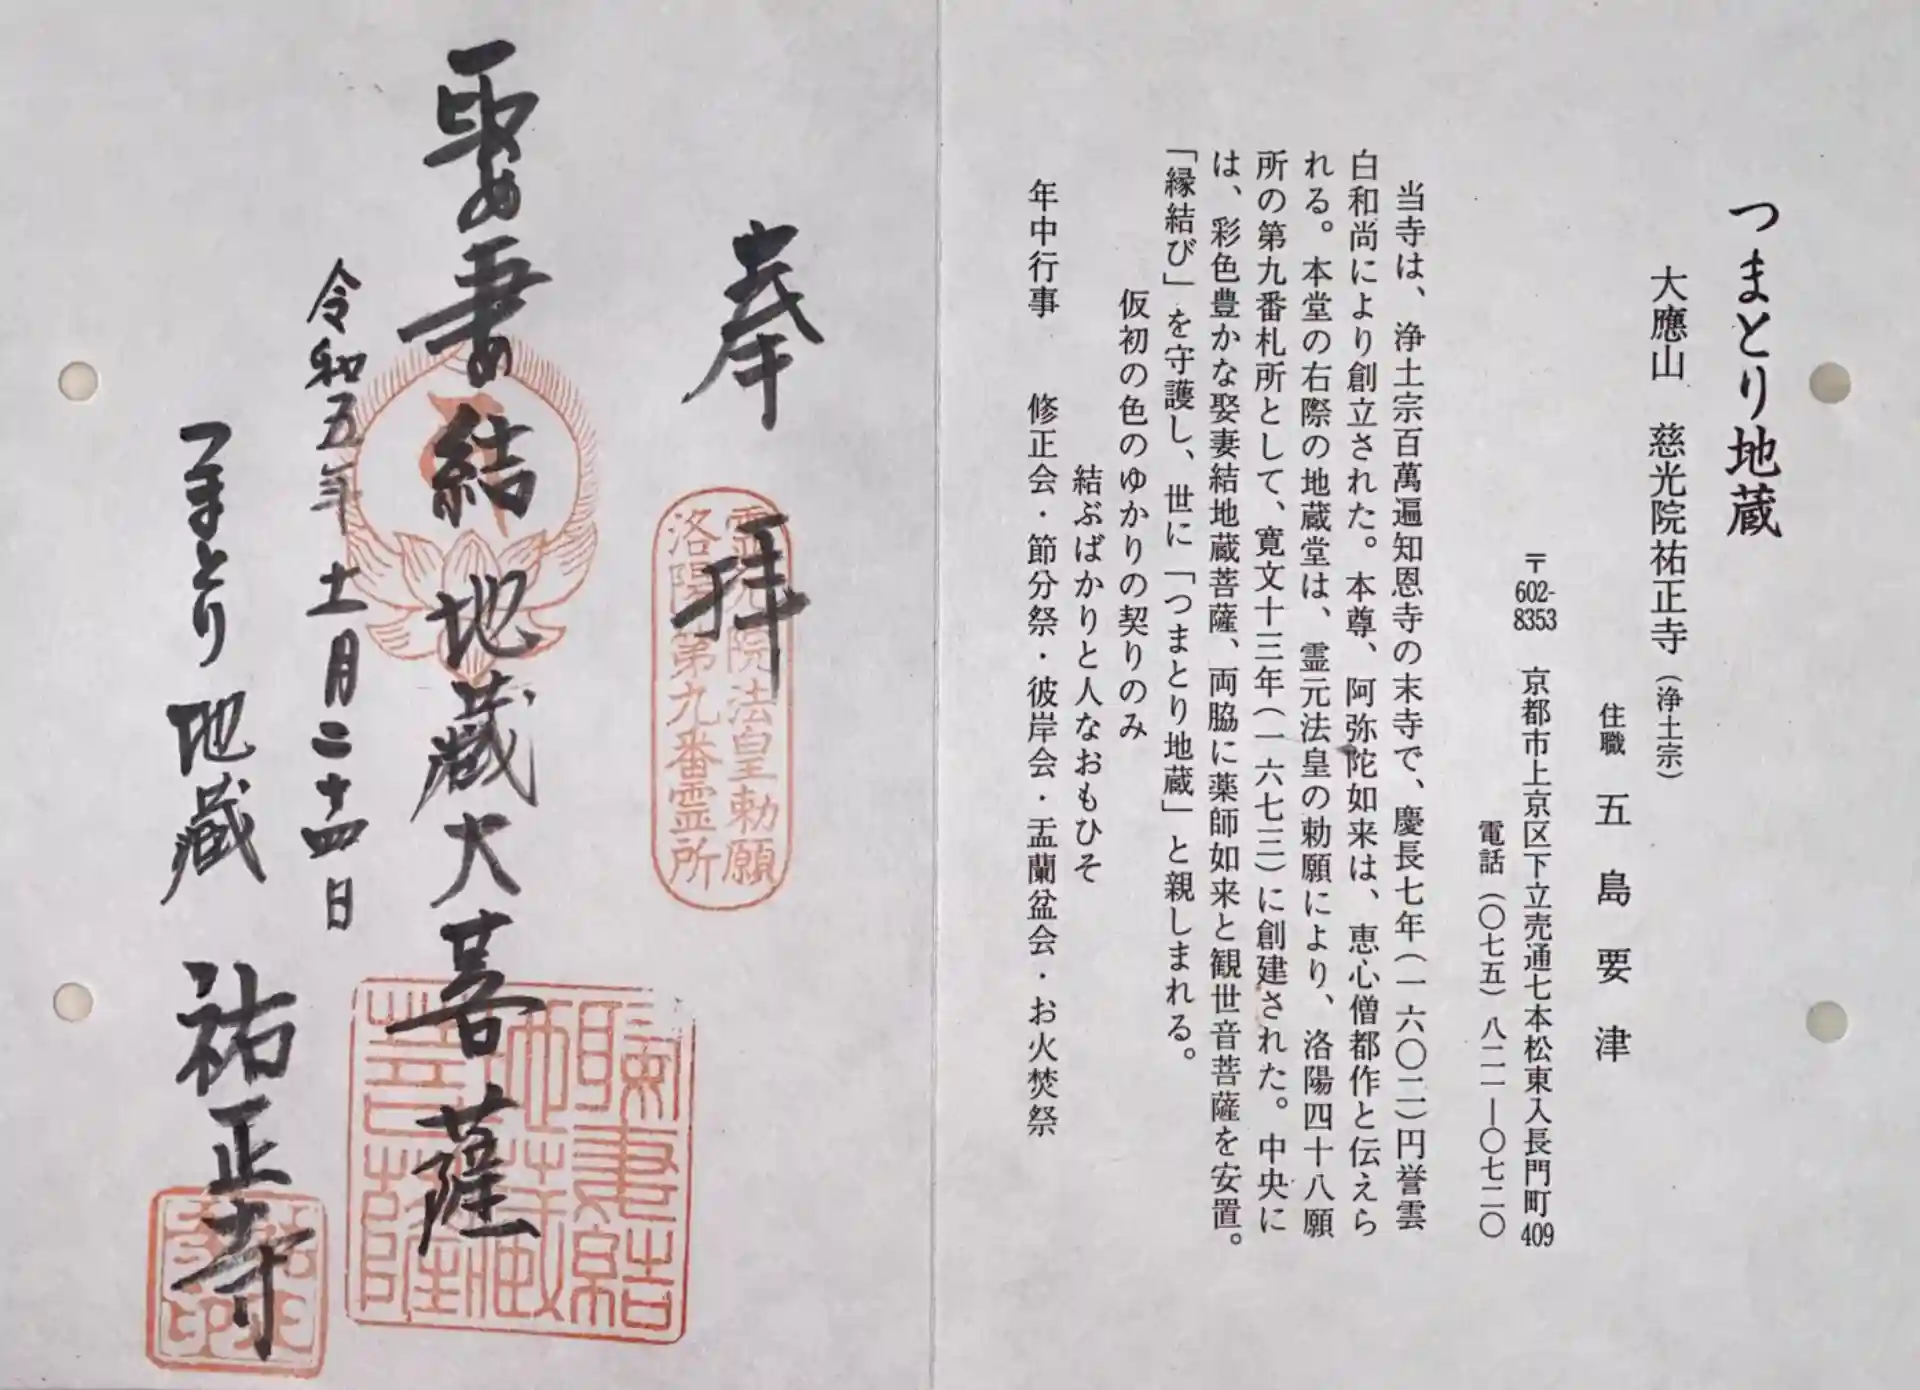 つまとり地蔵
大應山　慈光院祐正寺（浄土宗）
住職　五島要津
〒602-8353　京都市上京区下立売通七本松東入長門町409
電話（〇七五）八一一―〇七二〇
当寺は、浄土宗百萬遍知恩寺の末寺で、慶長七年（一六〇二）円誉雲
白和尚により創立された。本尊、阿弥陀如来は、恵心僧都作と伝えら
れる。本堂の右際の地蔵堂は、霊元法皇の勅願により、洛陽四十八願
所の第九番札所として、寛文十三年（一六七三）に創建された。中央に
は、彩色豊かな娶妻結地蔵菩薩、両脇に薬師如来と観世音菩薩を安置。
「縁結び」を守護し、世に「つまとり地蔵」と親しまれる。
仮初の色のゆかりの契りのみ
結ぶばかりと人なおもひそ
年中行事　修正会・節分祭・彼岸会・盂蘭盆会・お火焚祭
奉拝
霊元院法皇勅願
洛陽第九番霊所
娶妻結地蔵大菩薩
令和五年十一月二十四日
つまとり地蔵　祐正寺